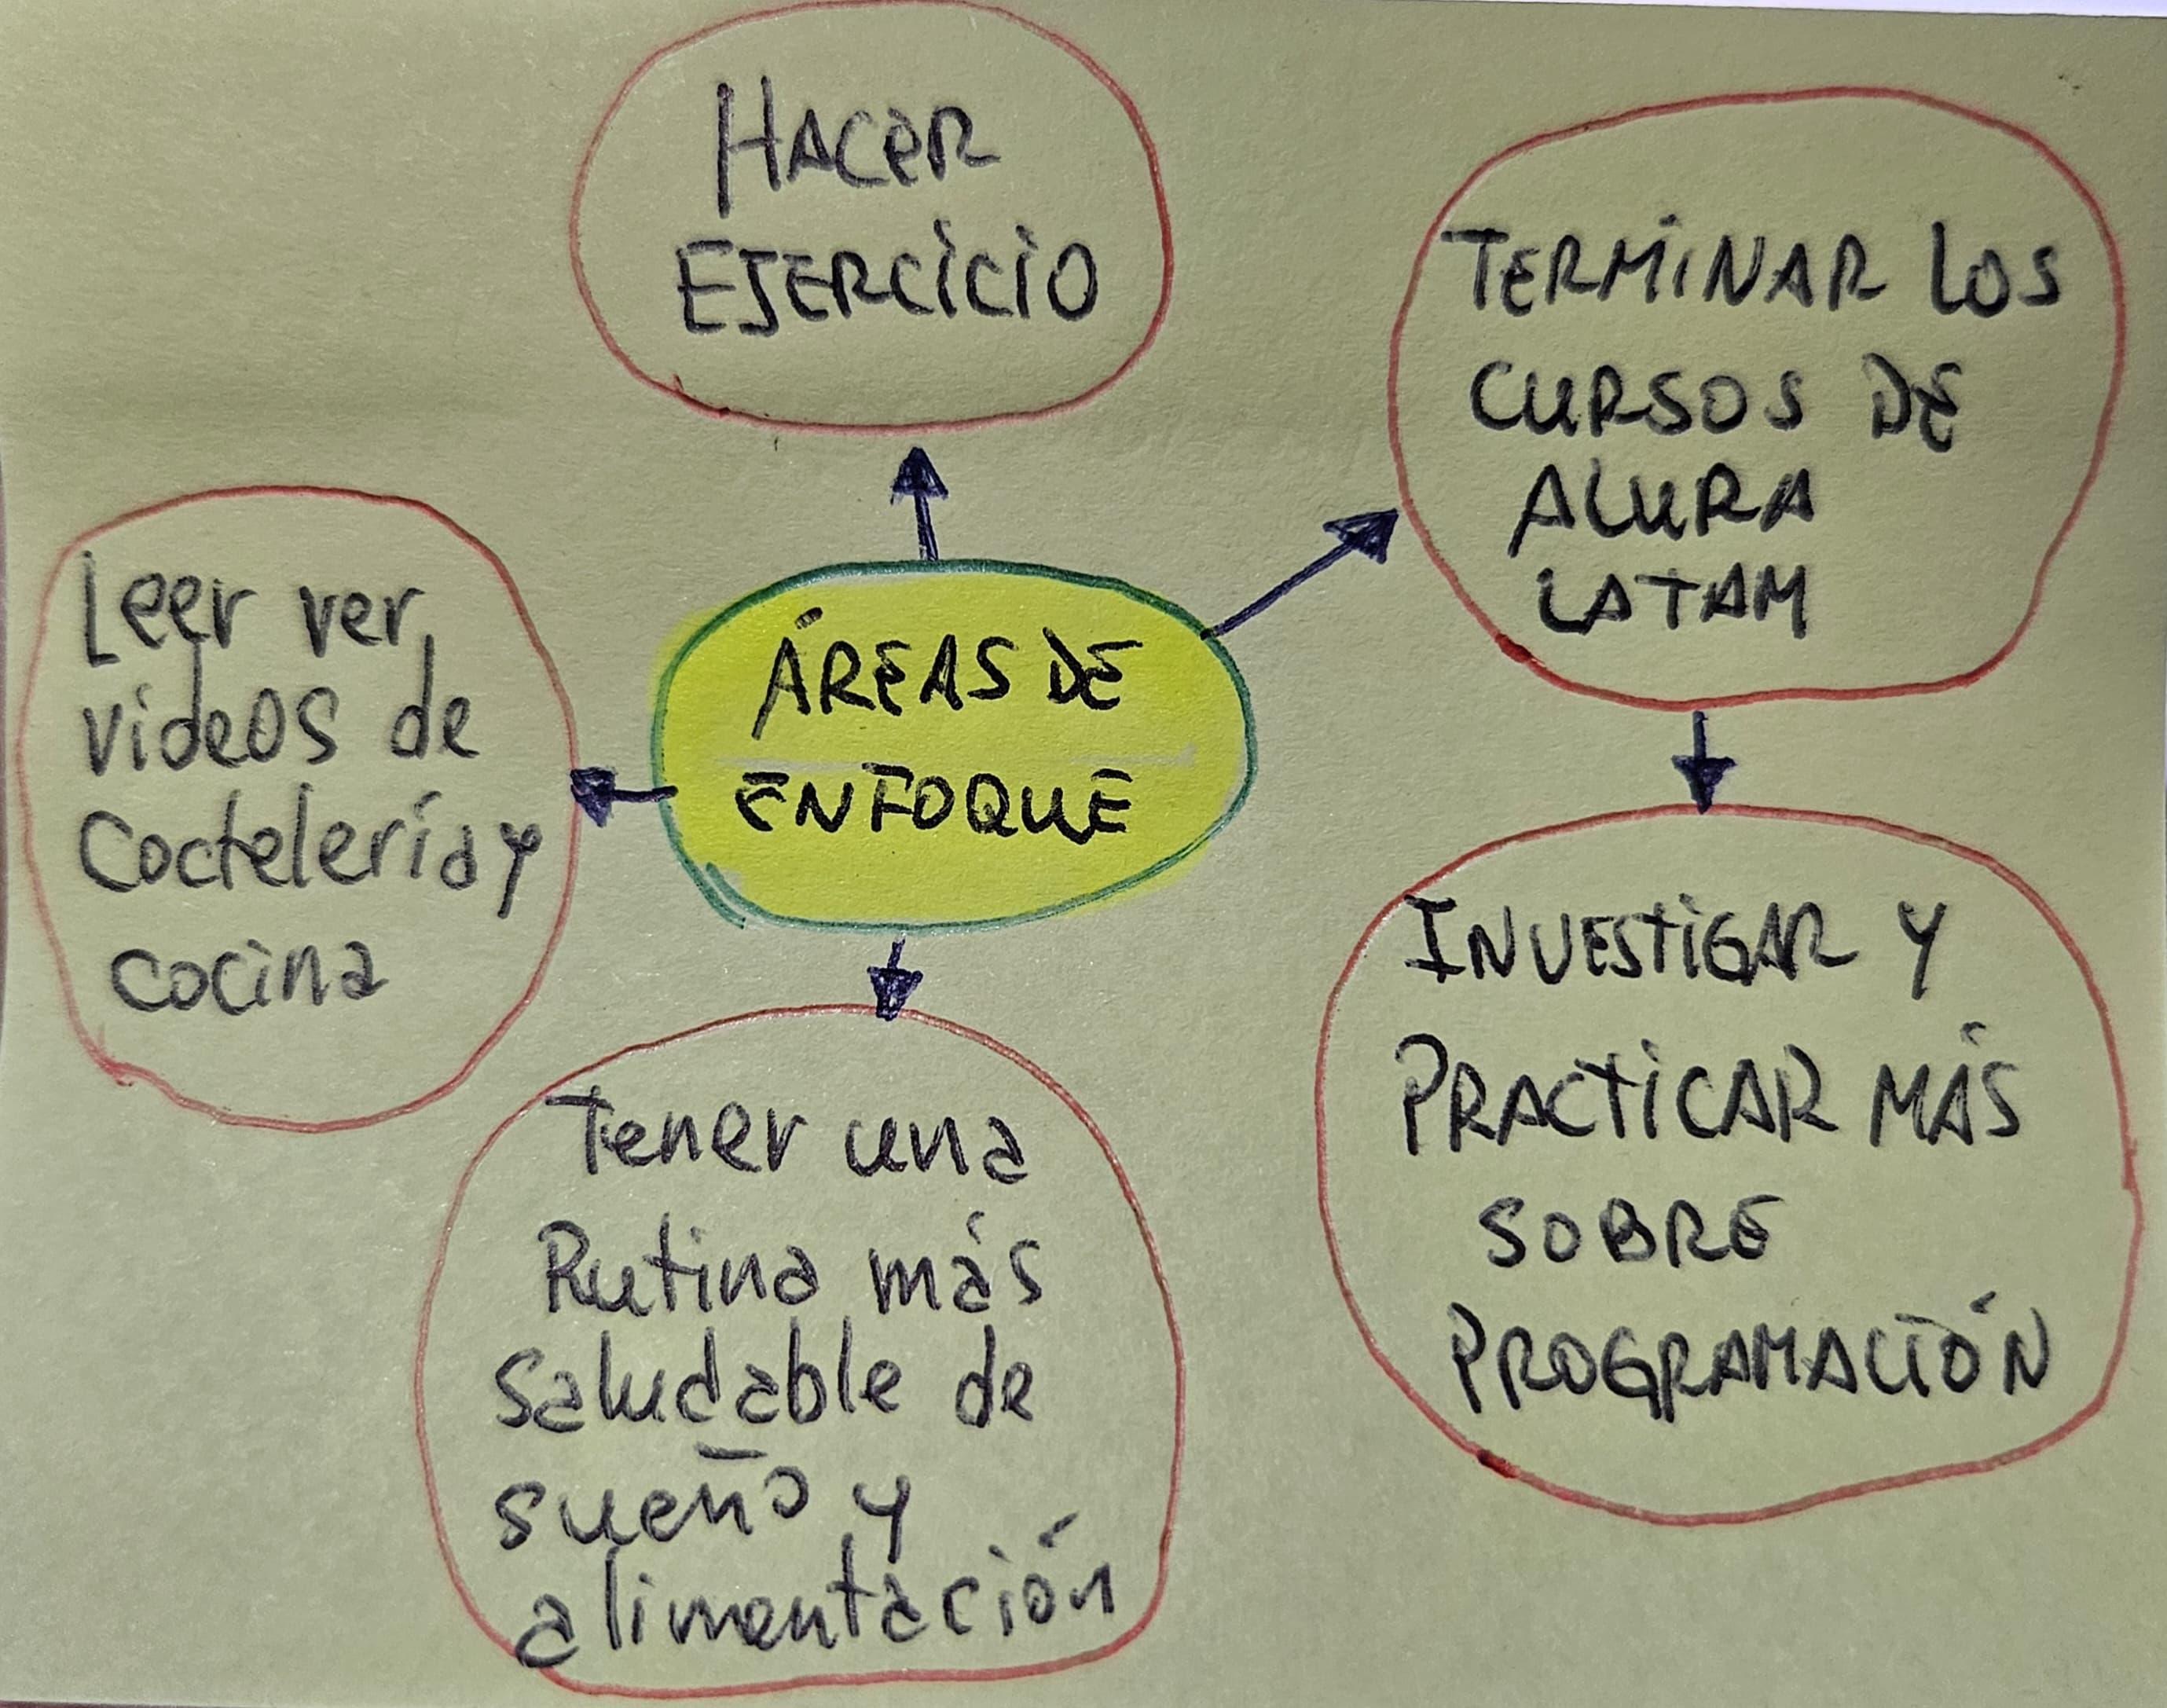 HACER
EJERCICIO
TERMINAR LOS
CURSOS DE
ALURA
LATAM
Leer ver
videos de
Coctelería y
cocina
ÁREAS DE
ENFOQUE
INVESTIGAR Y
PRACTICAR MÁS
SOBRE
PROGRAMACIÓN
Tener una
Rutina más
saludable de
sueño y
alimentación